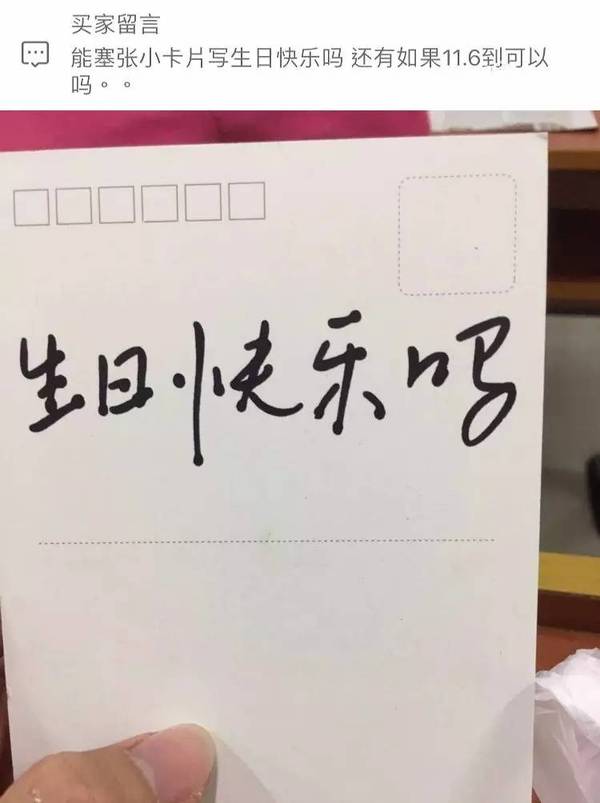 买家留言
能塞张小卡片写生日快乐吗 还有如果11.6到可以
吗。。
生日快乐吗